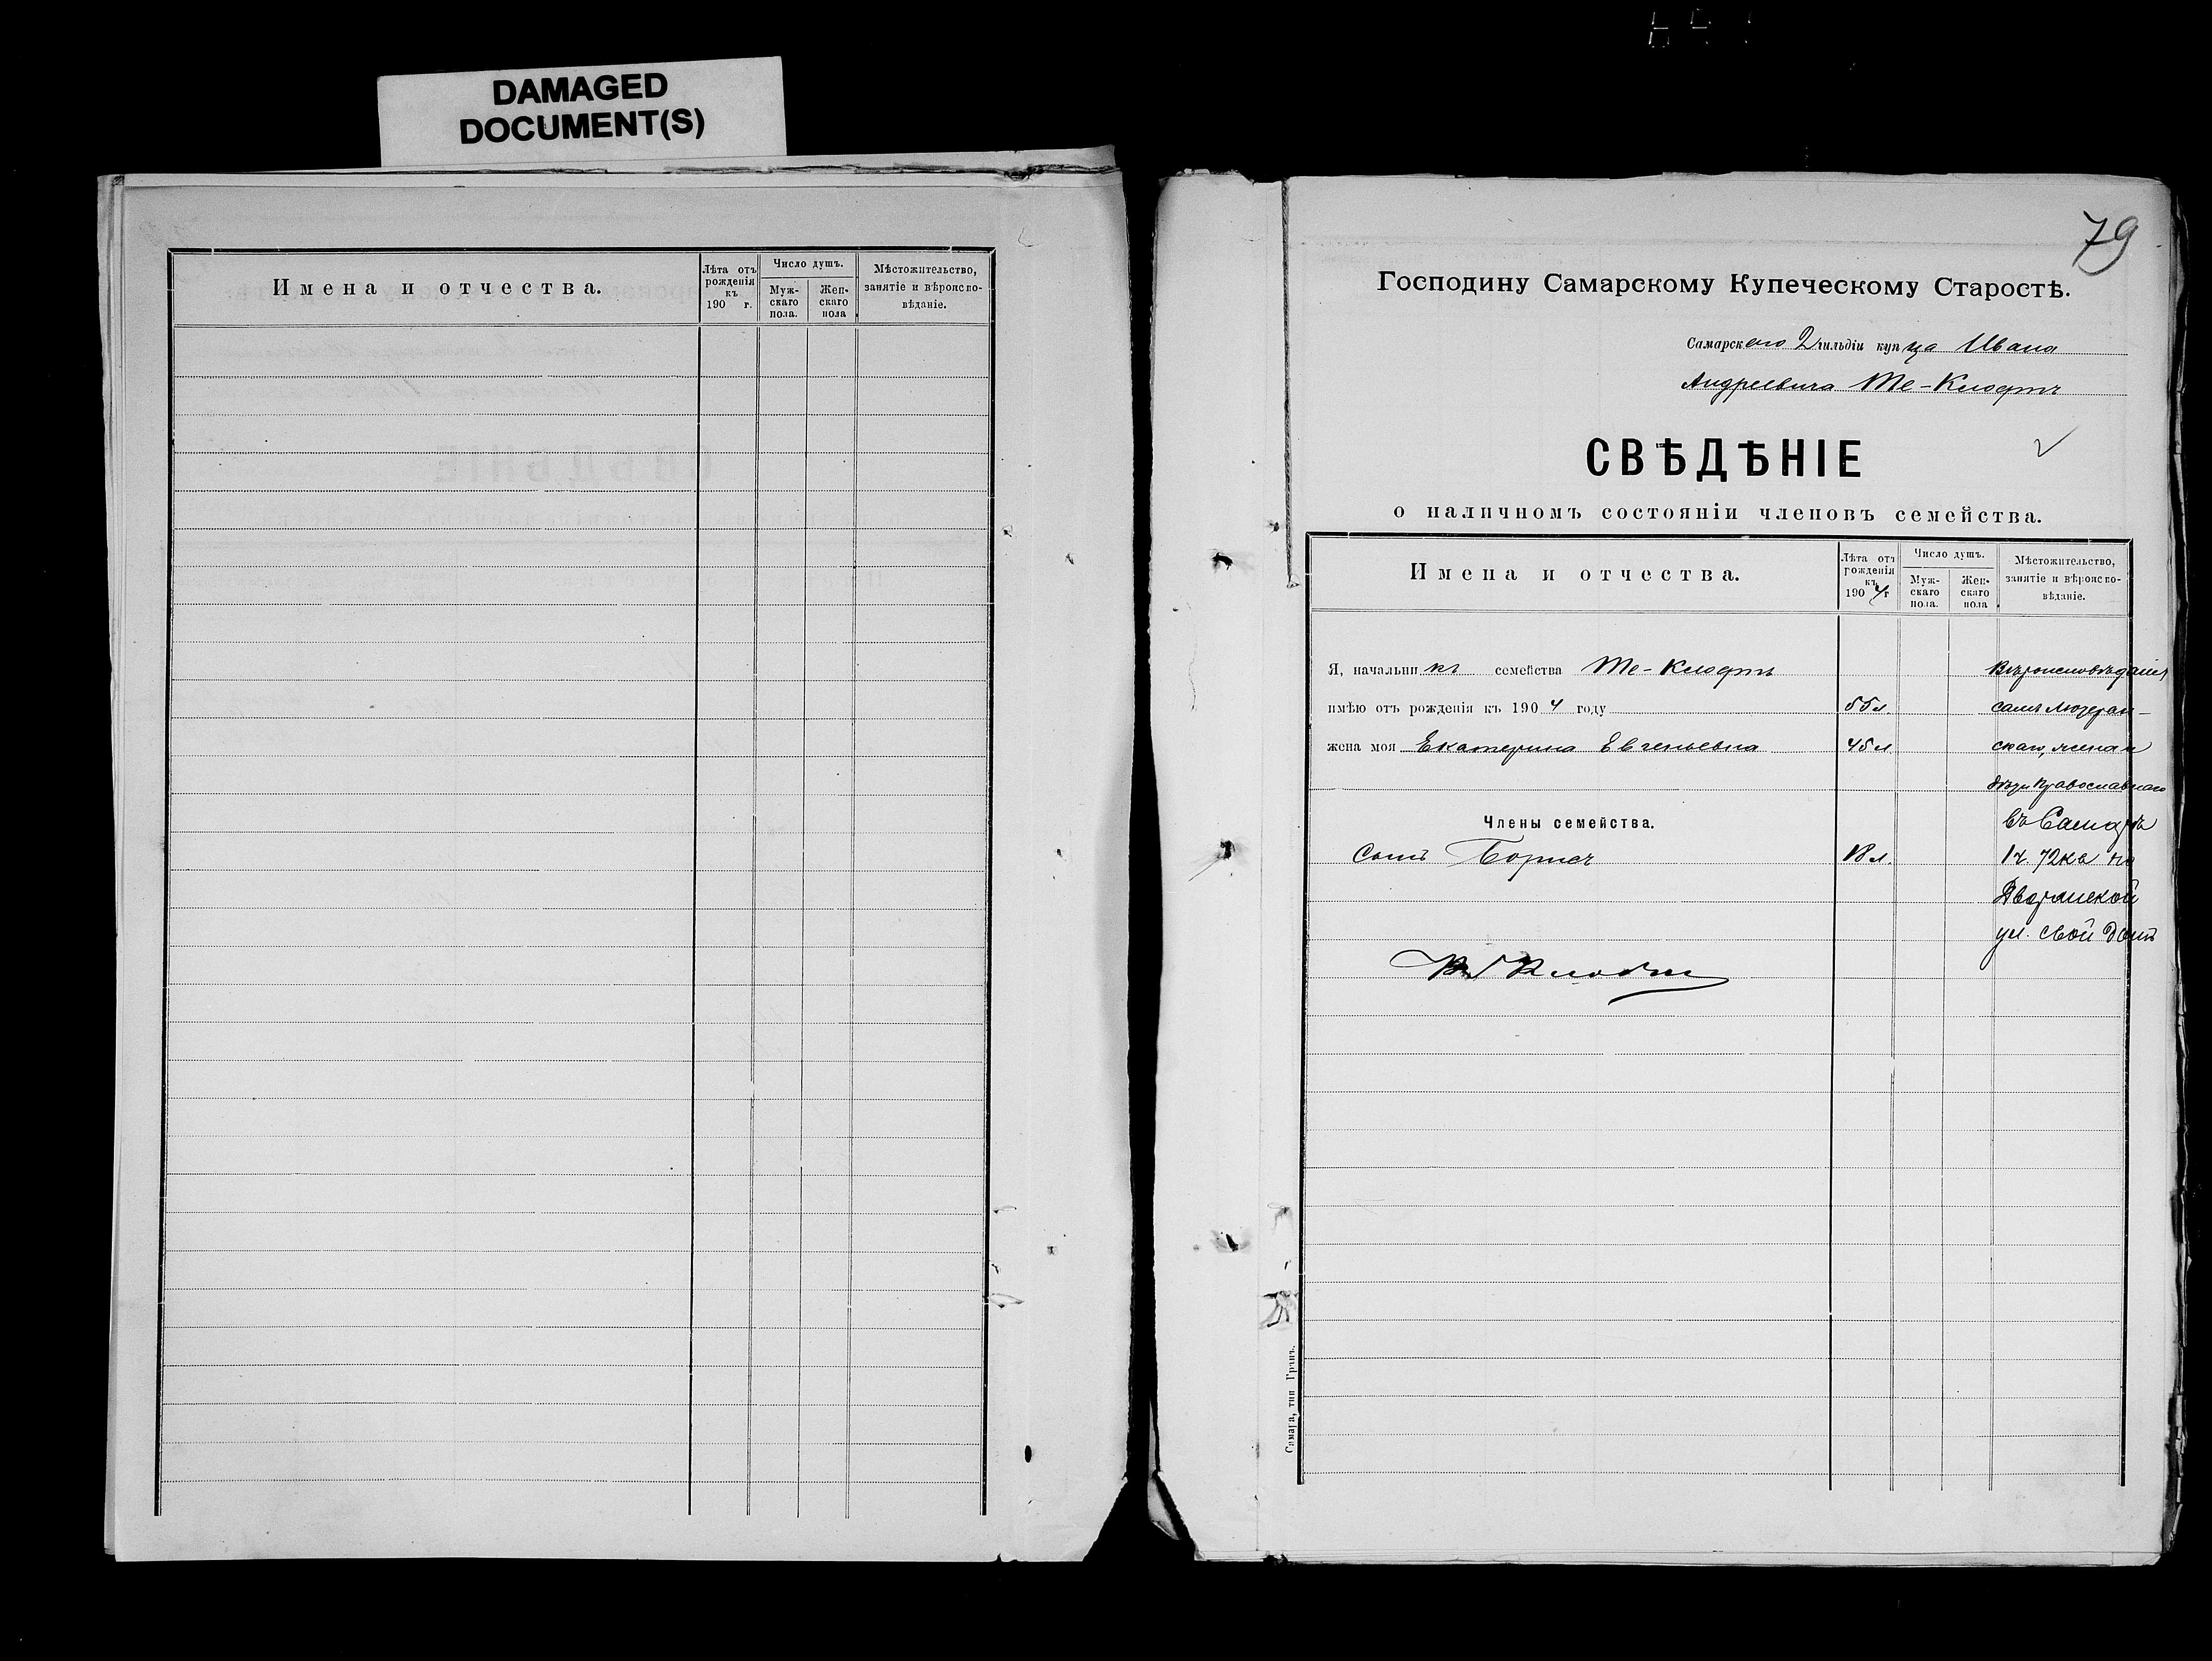 DAMAGED
DOCUMENT(S)
Имена и отчества.
Лѣта отъ рожденія къ 190 г.
Число душъ.
Мужскаго пола.
Женскаго пола
Мѣстожительство, занятіе и вѣроисповѣданіе.
79
Господину Самарскому Купеческому Старостѣ.
Самарскаго 2 гильдіи купца Ивана
Андреевича Те-Клодтъ
СВѢДѢНІЕ
о наличномъ состояніи членовъ семейства.
Имена и отчества.
Лѣта отъ рожденія къ 1904 г
Число душъ.
Мужскаго пола.
Женскаго пола
Мѣстожительство, занятіе и вѣроисповѣданіе.
Я, начальникъ семейства Те-Клодтъ Вѣроисповѣданія
имѣю отъ рожденія къ 1904 году 55 л. самъ Лютеран-
жена моя Екатерина Евгеньевна 45 л. скаго, жена и
дѣти Православнаго
Члены семейства. въ Самарѣ
Сынъ Борисъ 18 л. 1 ч. 72 кв на
Дворянской
ул. свой домъ
Самара, тип Гранъ.